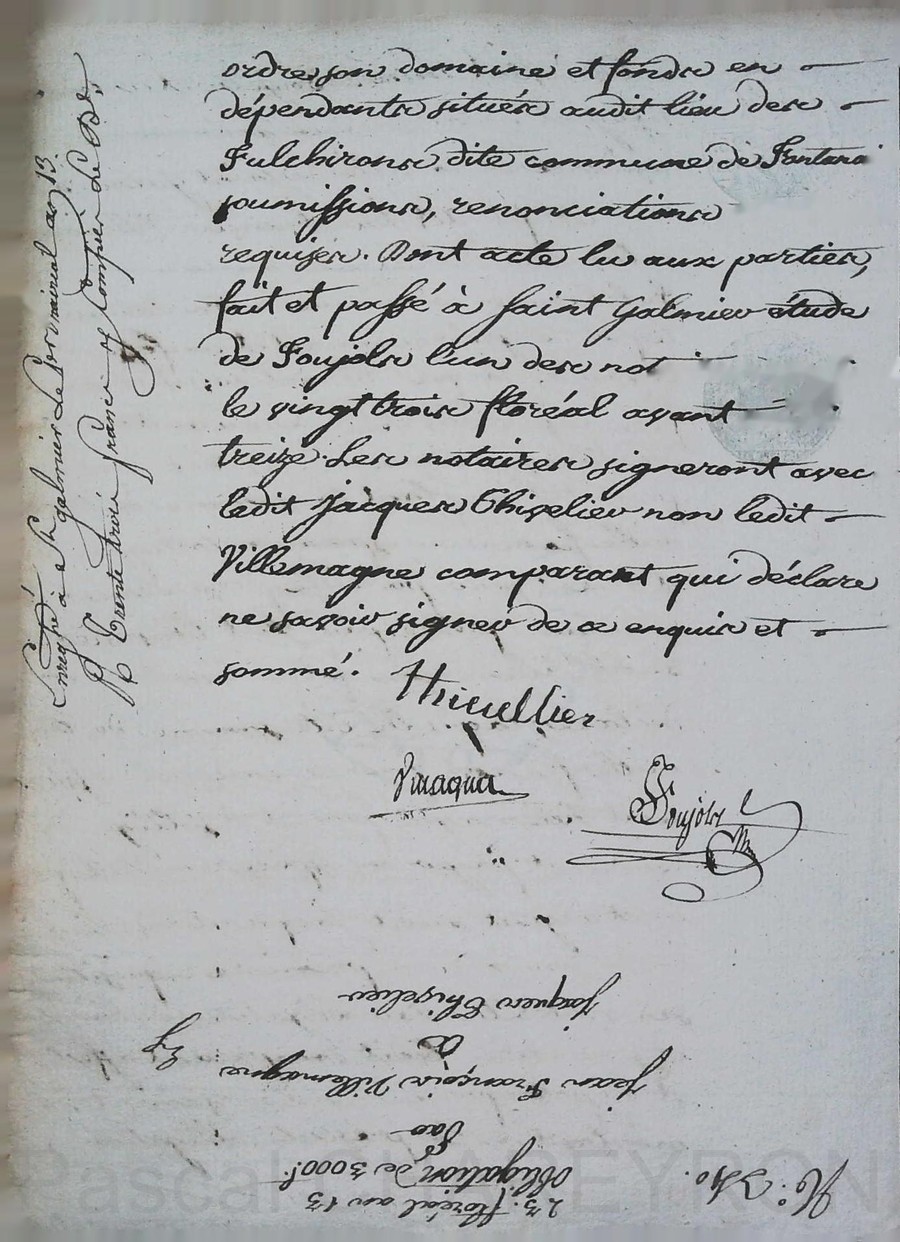 ordre, son domaine et fonds en
dépendants situés audit lieu des
Fulchirons dite commune de Fontanes
soumissions, renonciations
requises. Dont acte lu aux parties,
fait et passé à Saint Galmier étude
de Foujols l'un des not
le vingt trois floréal avant
treize. Les notaires signeront avec
ledit Jacques Thivelier non ledit
Villemagne comparant qui déclare
ne savoir signer de ce enquis et
sommé.
Foujols
Enregtré à St galmier Le
Trente trois francs
Jacques Thivelier
à
Jean François Villemagne
Par
Obligation de 3000f.
23. floréal an 13
N.º 340.
Pascal CHAPEYRON